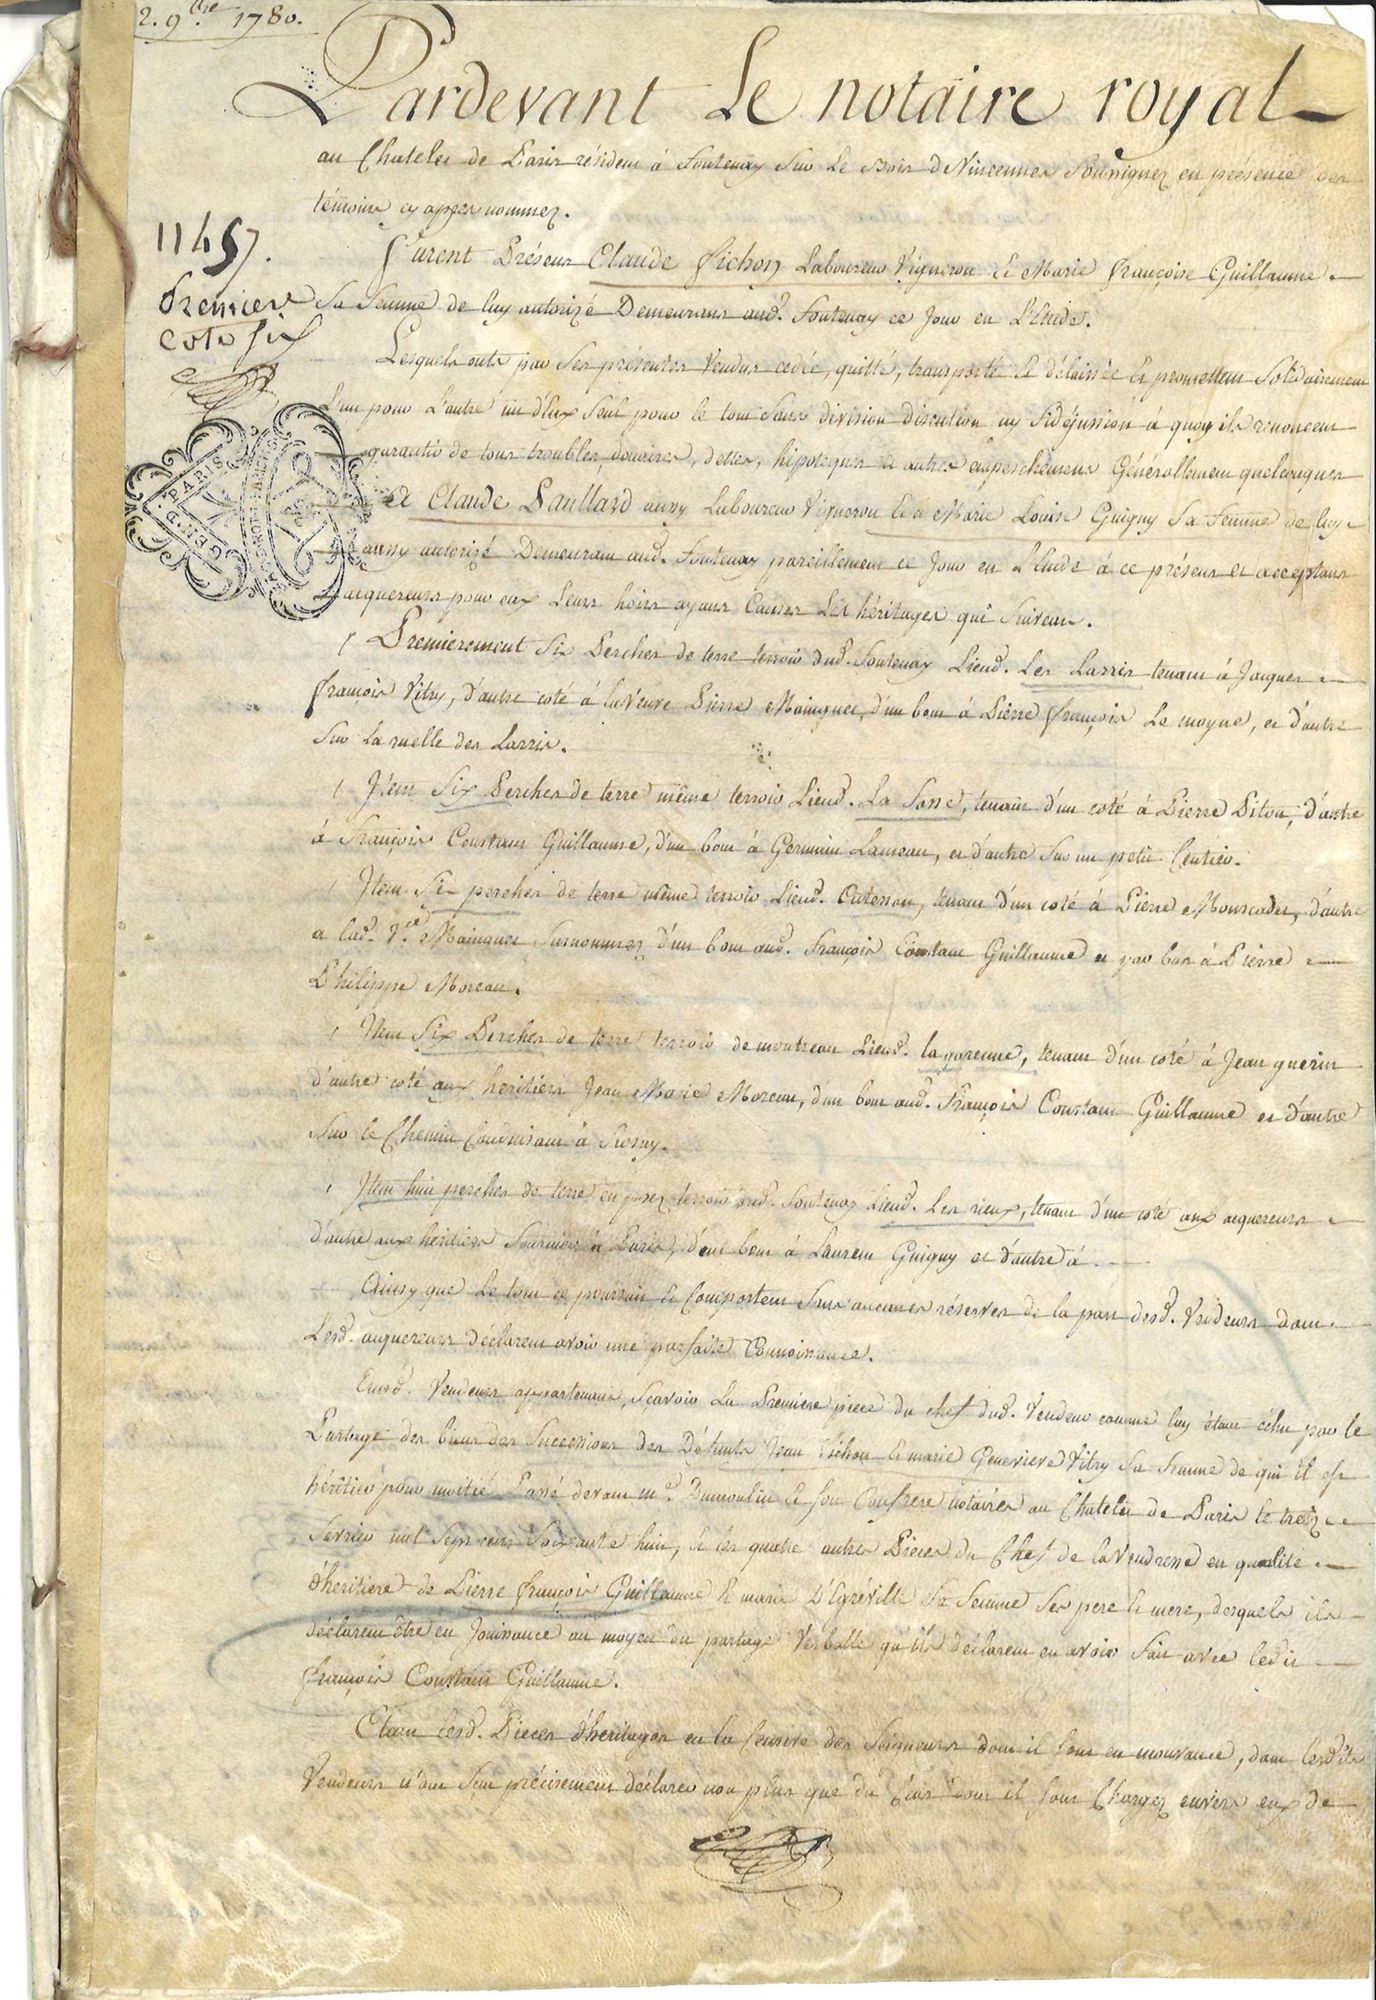 2. 9bre 1780.
Pardevant Le notaire royal
au Chatelet de Paris résident à Fontenay sur Le Bois de Vincennes soussigné en présence des
témoins cy apres nommez.
11457.
Premiere
Cote six
Furent Présens Claude Fichon Laboureur Vigneron et Marie françoise Guillaume
sa femme de luy autorizé Demeurans aud. Fontenay ce jour en l'Etude.
Lesquels onts par ses présentes vendus cedée, quitté, transporté et délaissée et promettent solidairement
l'un pour l'autre un d'Eux seul pour le tout sans division discution ny fidéjussion à quoy ils renoncent
garantir de tous troubles, douaires, dettes, hipoteques et autres empeschemens Générallement quelconques
A Claude Paullard aussy Laboureur Vigneron et Marie Louise Guigny sa femme de luy
aussy autorizé Demeurant aud. Fontenay pareillement ce jour en l'Etude à ce présens et acceptans
acquereurs pour eux leurs hoirs ayans causes Les héritages qui suivent.
Premierement six Perches de terre terroir dud. Fontenay Lieud. Les Larris tenant à Jacques
françois Vitry, d'autre coté à la Veuve Pierre Mainguet, d'un bout à Pierre françois Le moyne, et d'autre
sur La ruelle des Larris.
Item six Perches de terre même terroir Lieud. La Fosse, tenant d'un coté à Pierre Piton, d'autre
à François Constant Guillaume, d'un bout à Germain Lameau, et d'autre sur un petit sentier.
Item six perches de terre même terroir Lieud. tenant d'un coté à Pierre Mouscadet, d'autre
à lad. Ve. Mainguet susnommez d'un bout aud. François Constant Guillaume et par bas à Pierre
Philippe Moreau.
Item six Perches de terre terroir de montreau Lieud. la garenne, tenant d'un coté à Jean guerin
d'autre coté aux heritiers Jean Marie Moreau, d'un bout aud. François Constant Guillaume et d'autre
sur le Chemin Conduisant à Rosny.
Item huit perches de terre en prez terroir dud. Fontenay Lieud. Les rieux, tenant d'un coté aux acquereurs
d'autre aux héritiers à Paris, d'un bout à Laurent Guigny et d'autre à
Ainsy que Le tout se poursuit et Comportent sans aucunes réserves de la part desd. Vendeurs dont
Lesd. acquereurs déclarent avoir une parfaite Connoissance.
Auxd. Vendeurs appartenans, sçavoir La Premiere piece du chef dud. Vendeur comme luy étant échu par le
Partage des biens des Successions des Défunts Jean Fichon et marie Genevieve Vitry sa femme de qui il est
héritier pour moitié Passé devant me. Dumoulin et son Confrere notaires au Chatelet de Paris le treize
fevrier mil sept cens soixante huit, et les quatre autres Pieces du Chef de la Vendresse en qualité
d'héritiere de Pierre françois Guillaume et marie D'Egréville sa femme ses pere et mere, desquels ils
déclarent être en Jouissance au moyen du partage Verballe qu'ils déclarent en avoir fait avec ledit
François Constant Guillaume.
Etant lesd. Pieces d'heritages en la Censive des Seigneurs dont il sont en mouvance, dont lesdits
Vendeurs n'ont sçu précisement déclarer non plus que du Cens dont il sont Chargez envers eux de
PARIS
GEN. D.